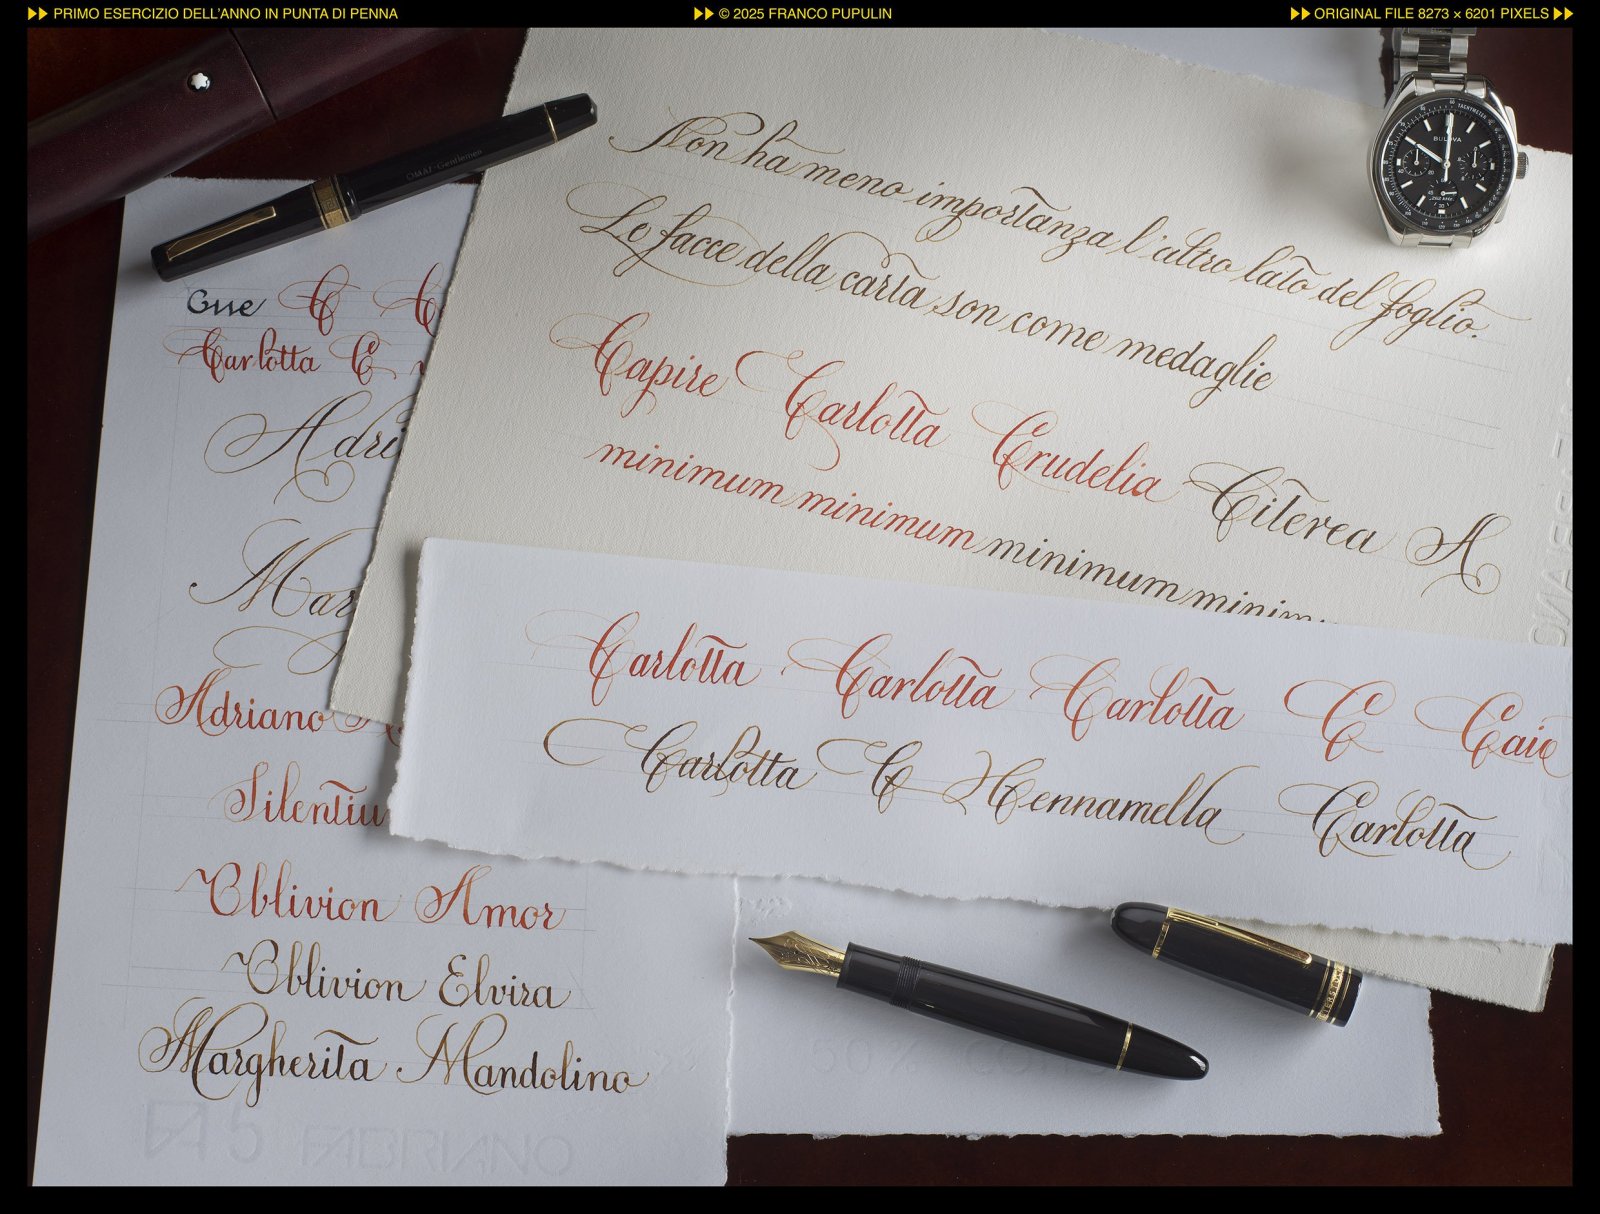 PRIMO ESERCIZIO DELL'ANNO IN PUNTA DI PENNA
© 2025 FRANCO PUPULIN
ORIGINAL FILE 8273 × 6201 PIXELS
OMAS-Gentlemen
BULOVA
TACHYMETER
262 kHz
Non ha meno importanza l'altro lato del foglio.
Le facce della carta son come medaglie
Capire Carlotta Crudelia Citerea A
minimum minimum minimum minim
Carlotta Carlotta Carlotta C Caio
Carlotta C Hennamella Carlotta
C C
Carlotta C
Adri
Mar
Adriano
Silentiu
Oblivion Amor
Oblivion Elvira
Margherita Mandolino
FA 5 FABRIANO